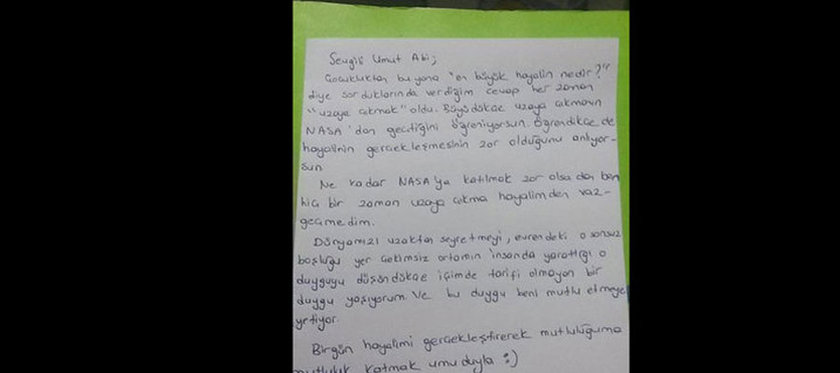 Sevgili Umut Abi;
Çocukluktan bu yana "en büyük hayalin nedir?"
diye sorduklarında verdiğim cevap her zaman
"uzaya çıkmak" oldu. Büyüdükçe uzaya çıkmanın
NASA'dan geçtiğini öğreniyorsun. Öğrendikçe de
hayalinin gerçekleşmesinin zor olduğunu anlıyor-
sun
Ne kadar NASA'ya katılmak zor olsa da ben
hiç bir zaman uzaya çıkma hayalimden vaz-
geçmedim.
Dünyamızı uzaktan seyretmeyi, evrendeki o sonsuz
boşluğu yer çekimsiz ortamın insanda yarattığı o
duyguyu düşündükçe içimde tarifi olmayan bir
duygu yaşıyorum. Ve bu duygu beni mutlu etmeye
yetiyor.
Birgün hayalimi gerçekleştirerek mutluluğuma
mutluluk katmak umuduyla :)